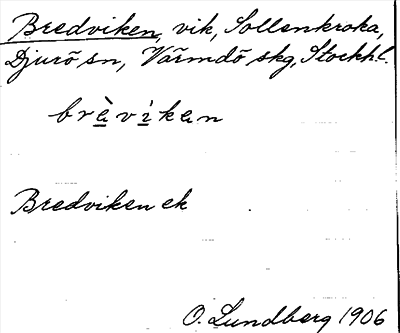 Bredviken, vik, Sollenkroka,
Djurö sn, Värmdö skg, Stockh.l.
brèvìkan
Bredviken ek
O. Lundberg 1906